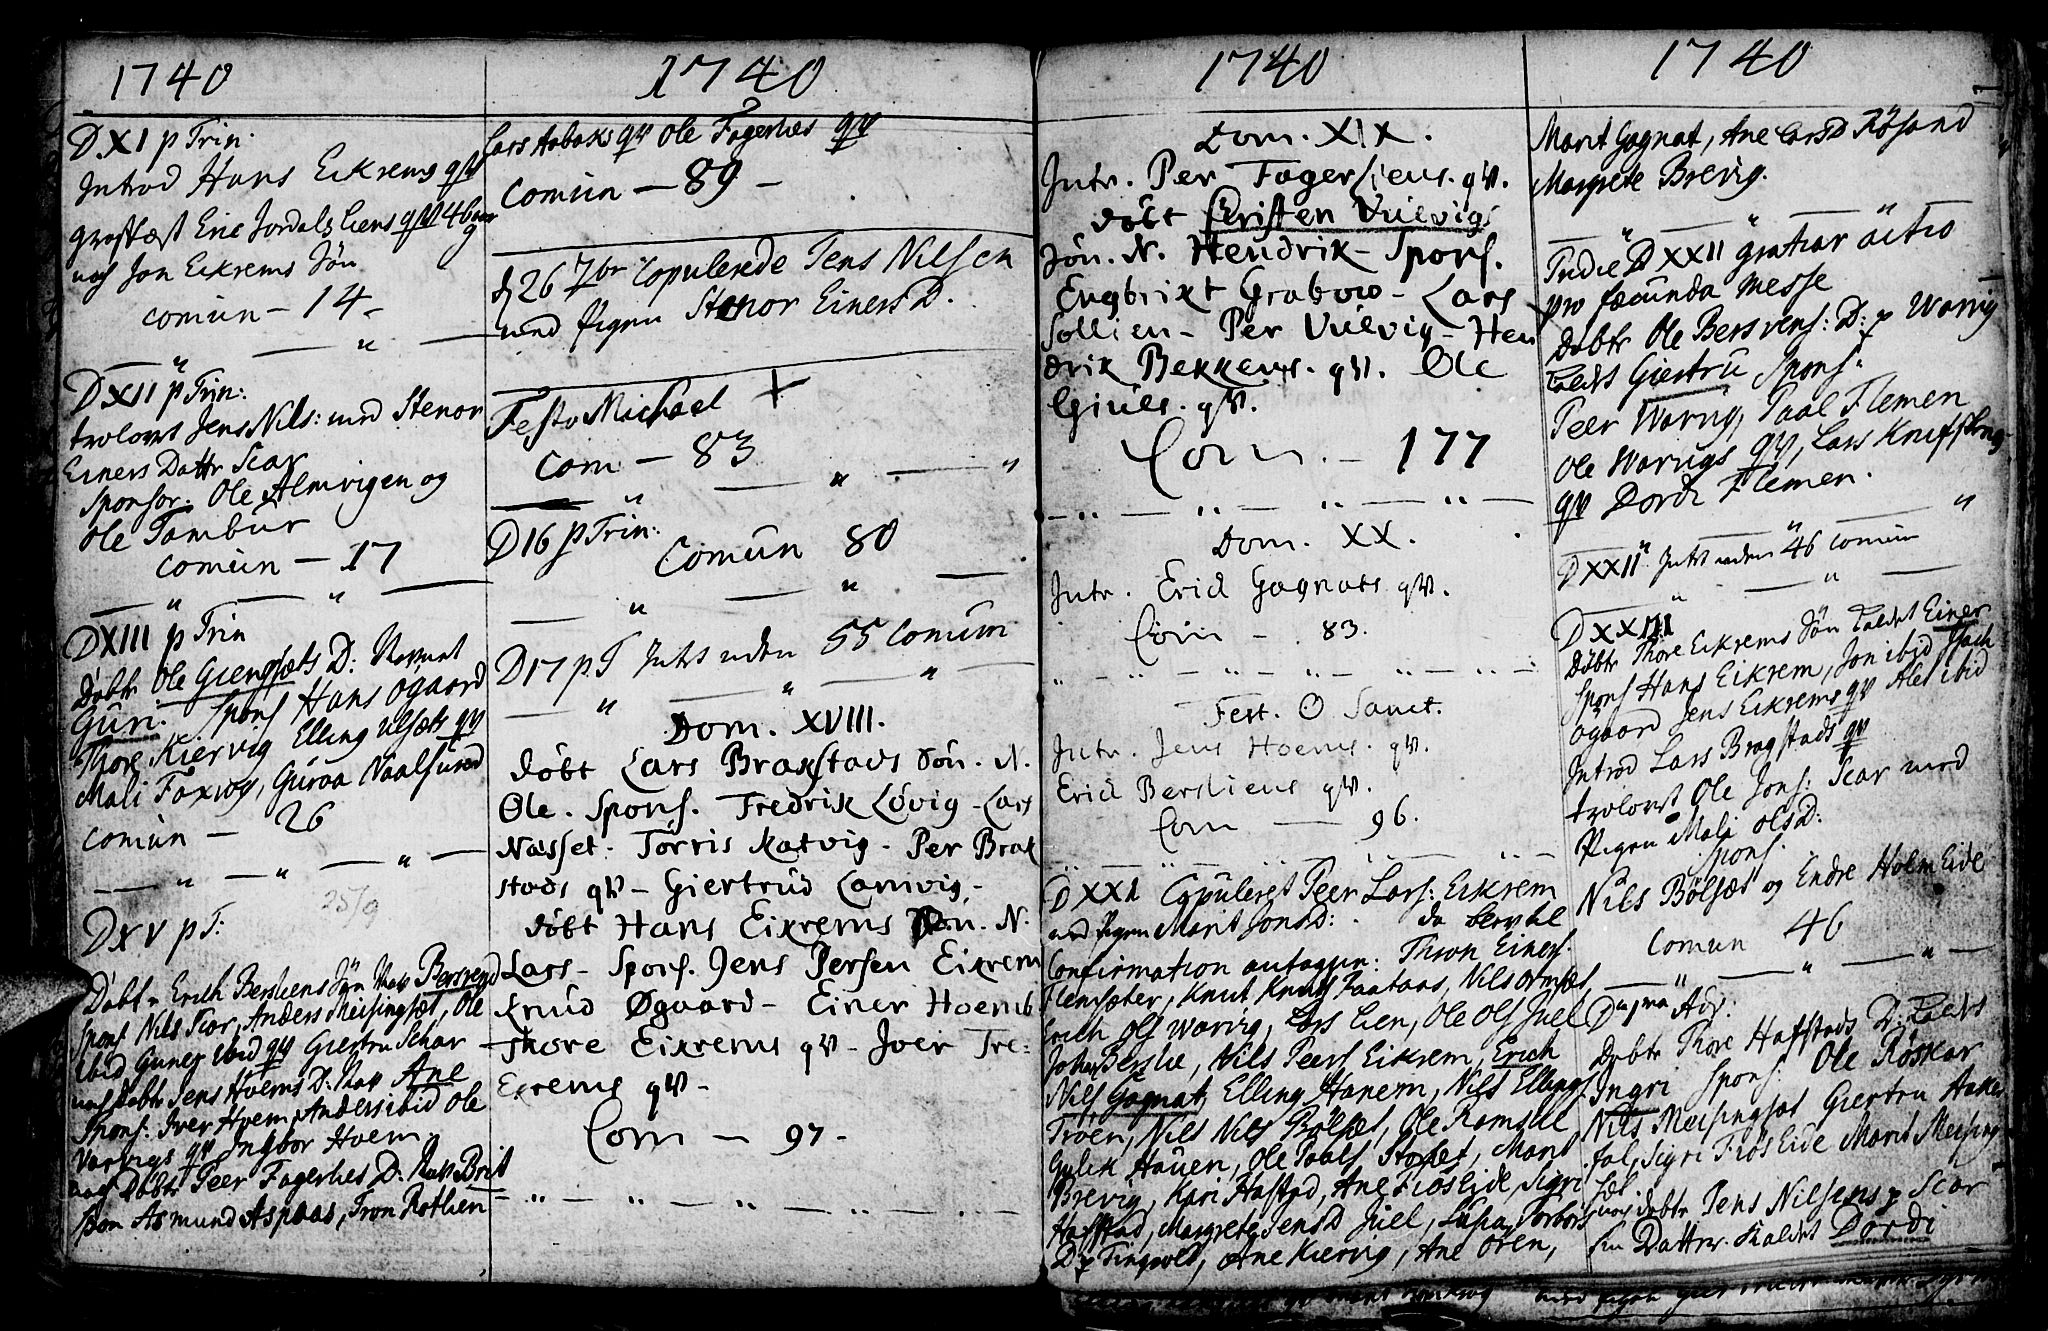 1740
D XI p Trin:
Introd Hans Eikrems qv
græsfæst Eric Jordalsliens qv 46
nok Jon Eikrems Søn
comun - 14 -
D XII p Trin:
trolovet Jens Nils: med Stenor
Einers Datter Scar
Sponsor: Ole Almvigen og
Ole Tambur
comun - 17
D XIII p Trin
Døbt Ole Giengsæts D:
Guri. Spons Hans Øgaard
Thore Kiervig Elling Ulsæts qv
Mali Foxwog, Guroa Naalsund
comun - 26
25/9
D XV p T:
Døbt Erich Bersliens Søn Bersvend
Spons Nils Scar, Anders Meisingset, Ole
ibid ibid qv Giertru Schar
nok Døbt Jens Hoems D: Ane
Spons: Iver Hoem, Anders ibid Ole
Varvigs qv Ingbor Hoem
nok Døbt Peer Fagerlies D: Brit
Spon Asmund Aspaas, Tron Rotlien
1740
Lars Aabaks qv Ole Fagerlies qv
comun - 89 -
d 26 7br copulerede Jens Nilsen
med Pigen Stenor Einers D.
Festo Michael +
com - 83
D 16 p Trin:
Comun 80
D 17 p T Intet uden 55 comun
Dom. XVIII.
døbt Lars Brakstads Søn. N.
Ole. Spons. Fredrik Løvig - Lars
Nasset - Tørris Katvig - Per Brak
stads qv - Giertrud Lamvig -
døbt Hans Eikrems Søn. N.
Lars - Spons. Jens Persen Eikrem
Knud Øgaard - Einer Hoems
Thore Eikrems qv - Iver Tre-
Exrems qv -
Com - 97 -
1740
Dom. XIX.
Intr. Per Fagersliens. qv.
døbt Cristen Vulvigs
Søn. N. Hendrik - Spons.
Engbrikt Grabow - Lars
Sollien - Per Vulvig - Hen
drik Bekkens. qv. Ole
Giules. qv.
Com. - 177
Dom. XX.
Intr. Erick Gagnats qv.
Com - 83.
Fest. O Sanct.
Intr. Jens Hoems. qv.
Erick Bersliens qv.
Com - 96.
D XXI Copuleret Peer Lars: Eikrem
med Pigen Marit Jons D: da
Confirmation antagen: Thron Einers.
Flemsæter, Knut Knuts Faataas, Nils Ormset,
Erich Ols Warvig, Lars Lien, Ole Ols Juel
Johan Berslie, Nils Peers Eikrem, Erich
Nils Gagnat, Elling Hanem, Nils Ellings
Troen, Nils Nils Bølset, Ole Ramsli
Gulik Hauen, Ole Paals Stokset, Marit
Brevig, Kari Hafstad, Ane Fiøseide, Sigri
Hafstad, Margrete Jens D Juel, Lusia Torbiørs
D p Tingvold, Ane Kiervig, Ane Oren,
1740
Marit Gagnat, Ane Lars D Røsand
Margrete Brevig.
Indie D XXII gratiar actio
pro fæcunda messe
Døbt Ole Bersvens: D: p Warvig
kaldt Giertru Spons:
Peer Warvig, Paal Flemen
Ole Warvigs qv, Lars
qv Dordi Flemen.
D XXII Intet uden 46 comun
D XXIII
Døbt Thore Eikrems Søn kaldet Einer
Spons Hans Eikrem, Jon ibid
Øgaard Jens Eikrems qv Ales ibid
Introd Lars Bragstads qv
trolovet Ole Jons: Scar med
Pigen Mali Ols D:
Spons.
Nils Bølsæt og Endre Holm Eide
Comun 46
D 1ma Adv.
Døbt Thore Hafstads D: kaldt
Ingri Spons: Ole Røskar
Nils Meisingset Giertru
Sigri Fiøseide Marit Meising
set
nok døbt Jens Nilsens p Scar
sin Datter kaldet Dordi